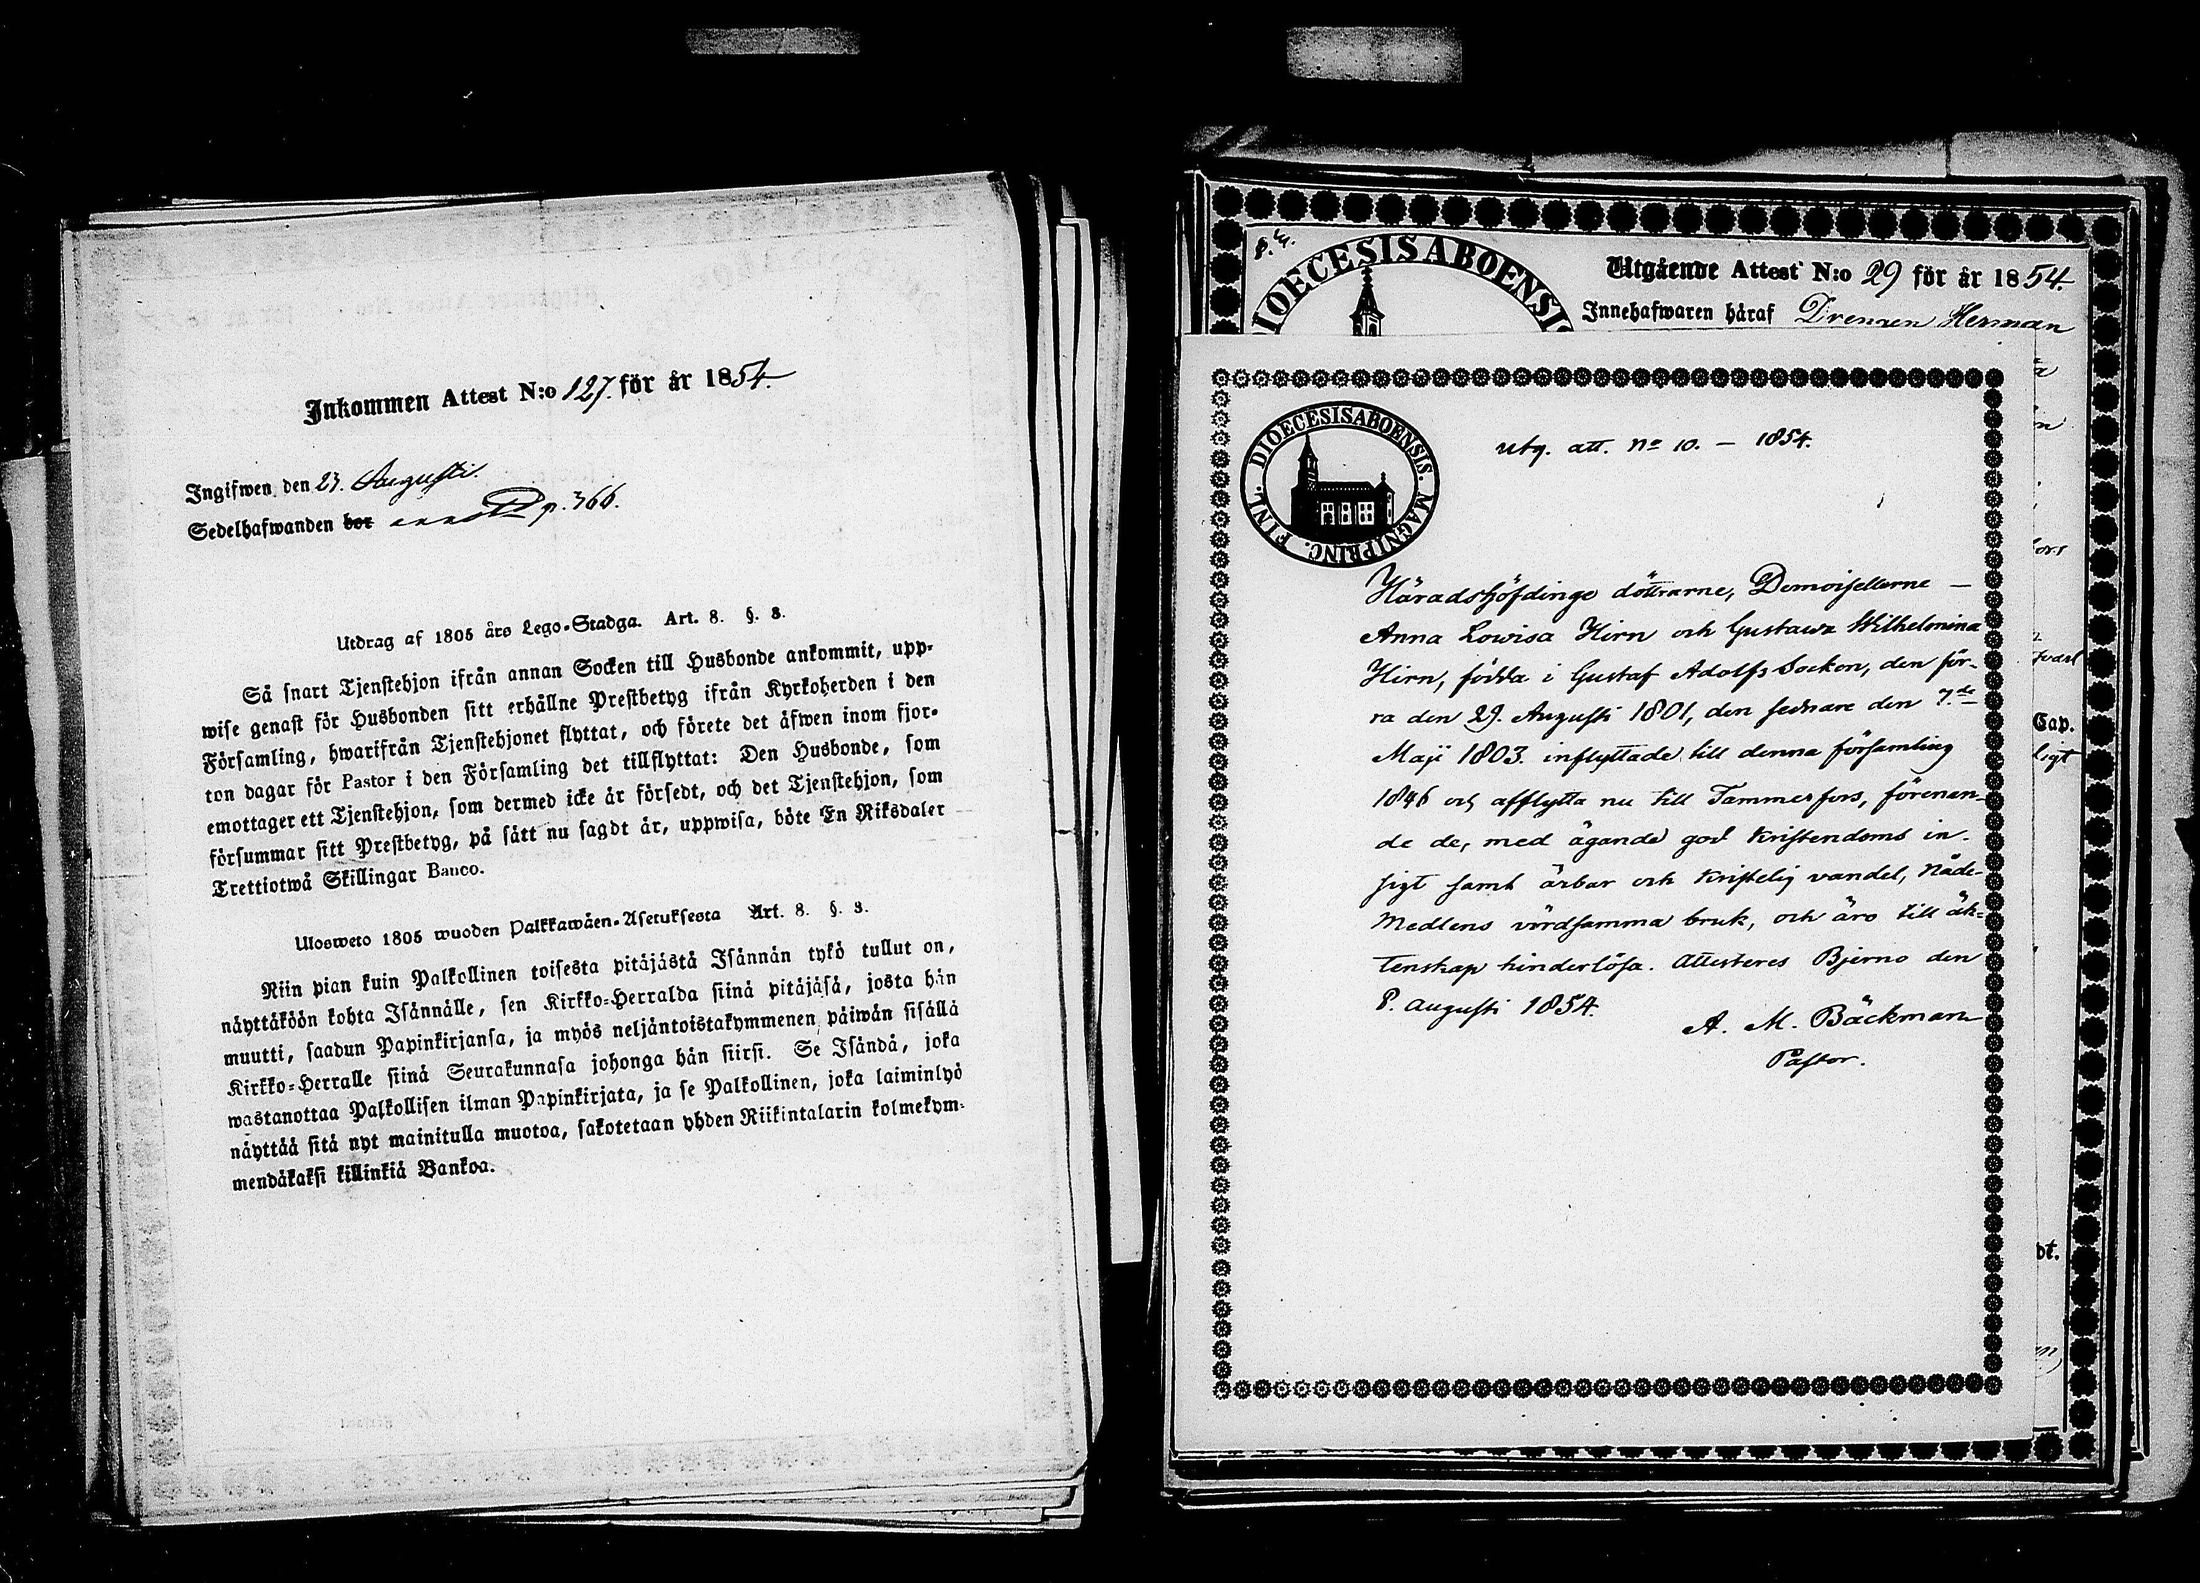 Inkommen Attest N:o 127. för år 1854.
Ingifwen den 23. Augusti.
Sedelhafwanden bor p. 366.
Utdrag af 1805 års Lego-Stadga. Art. 8. §. 3.
Så snart Tjenstehjon ifrån annan Socken till Husbonde ankommit, upp-
wise genast för Husbonden sitt erhållne Prestbetyg ifrån Kyrkoherden i den
Församling, hwarifrån Tjenstehjonet flyttat, och förete det äfwen inom fjor-
ton dagar för Pastor i den Församling det tillflyttat: Den Husbonde, som
emottager ett Tjenstehjon, som dermed icke är försedt, och det Tjenstehjon, som
försummar sitt Prestbetyg, på sätt nu sagdt är, uppwisa, böte En Riksdaler
Trettiotwå Skillingar Banco.
Ulosweto 1805 wuoden Palkkawäen-Asetuksesta Art. 8. §. 3.
Niin pian kuin Palkollinen toisesta pitäjästä Isännän tykö tullut on,
näyttäköön kohta Isännälle, sen Kirkko-Herralda siinä pitäjäsä, josta hän
muutti, saadun Papinkirjansa, ja myös neljäntoistakymmenen päiwän sisällä
Kirkko-Herralle siinä Seurakunnasa johonga hän siirsi. Se Isändä, joka
wastanottaa Palkollisen ilman Papinkirjata, ja se Palkollinen, joka laiminlyö
näyttää sitä nyt mainitulla muotoa, sakotetaan yhden Riikintalarin kolmekym-
mendäkaksi killinkiä Bankoa.
DIOECESIS ABOENSI
Utgående Attest N:o 29 för år 1854.
Innehafwaren häraf Drengen Herman
DIOECESIS ABOENSIS. MAGNI PRINC. FINL.
Utg. att. No 10. – 1854.
Häradshöfdinge döttrarne, Demoisellerne –
Anna Lowisa Hirn och Gustawa Wilhelmina
Hirn, födda i Gustaf Adolfs Socken, denför-
ra den 29. Augusti 1801, den sednare den 7.de
Maji 1803. inflyttade till denna församling
1846 och afflytta nu till Tammerfors, förenan-
de de, med ägande god Kristendoms in-
sigt samt ärbar och Kristelig vandel, Nåde-
Medlens vördsamma bruk, och äro till äk-
tenskap hinderlösa. Attesteres Bjerno den
8. Augusti 1854.
A. M. Bäckman
Pastor.
Cap.
ligt
dt.